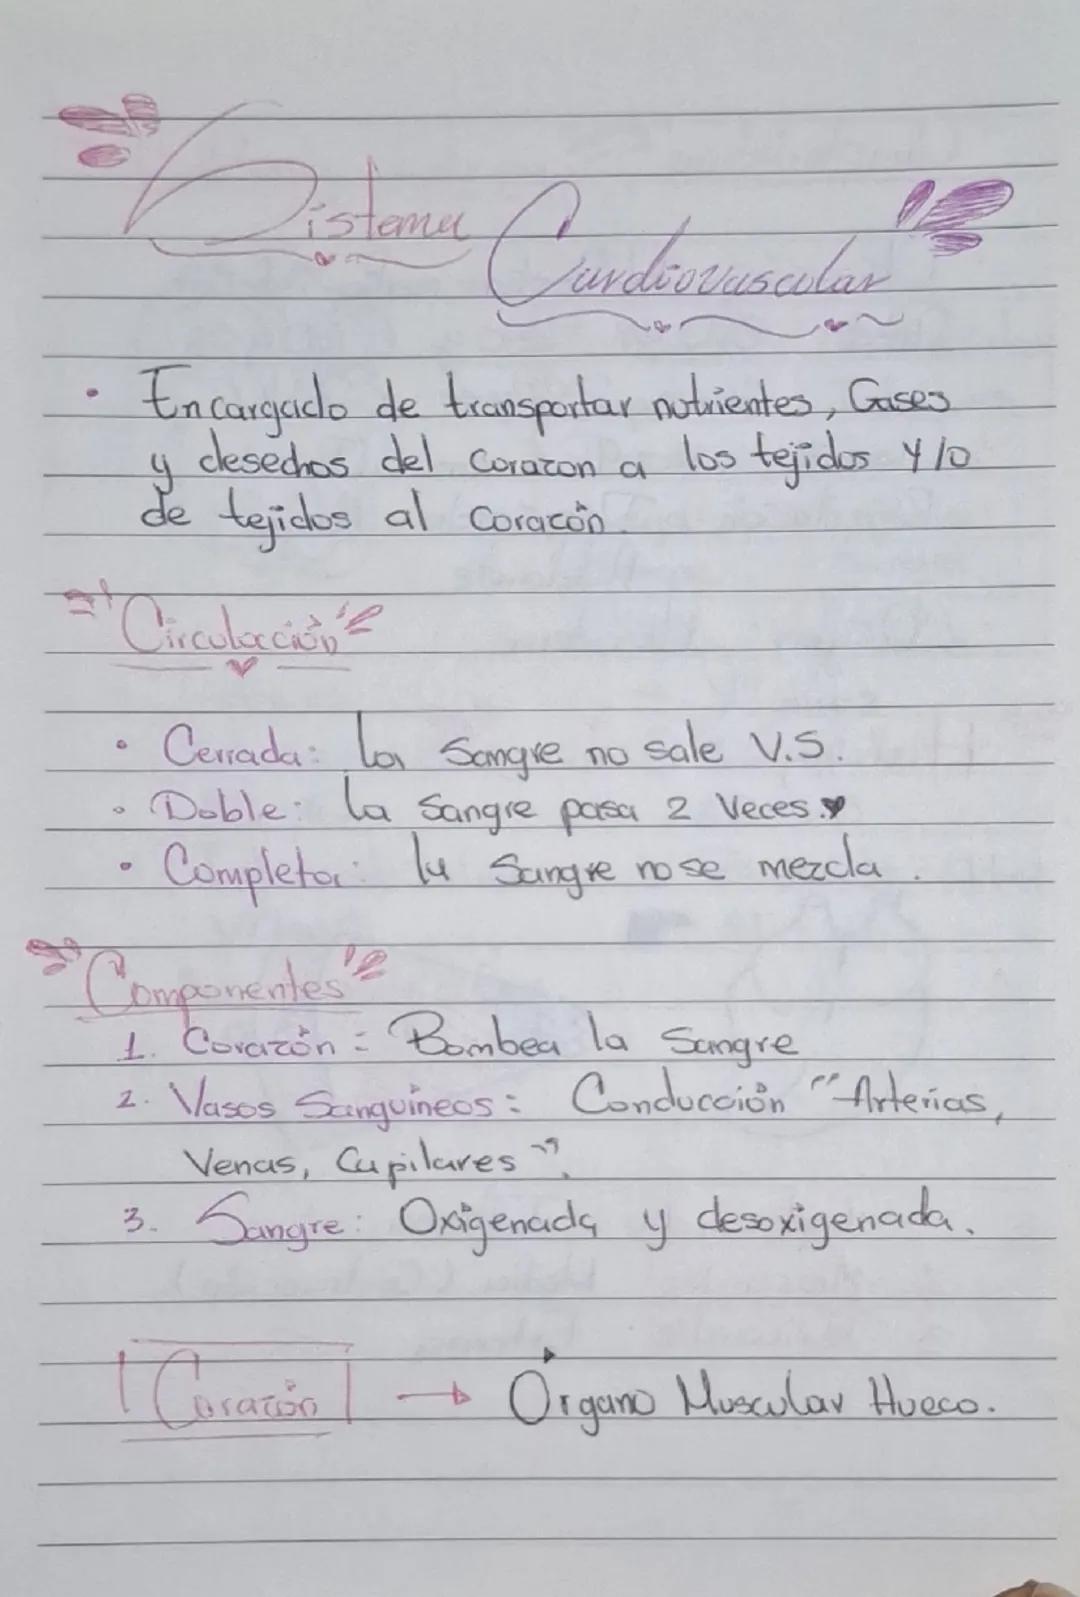 Sistema
Cardiovascular
• Encargado de transportar nutrientes, Gases
y desechos del corazon a los tejidos y/o
de tejidos al corazón.
Circulación
• Cerrada: la Sangre no sale V.S.
• Doble: la Sangre pasa 2 Veces.
• Completa: la Sangre no se mezcla.
Componentes
1. Corazón: Bombea la Sangre
2. Vasos Sanguíneos: Conducción "Arterias,
Venas, Capilares".
3. Sangre: Oxigenada y desoxigenada.
Corazón → Órgano Muscular Hueco.